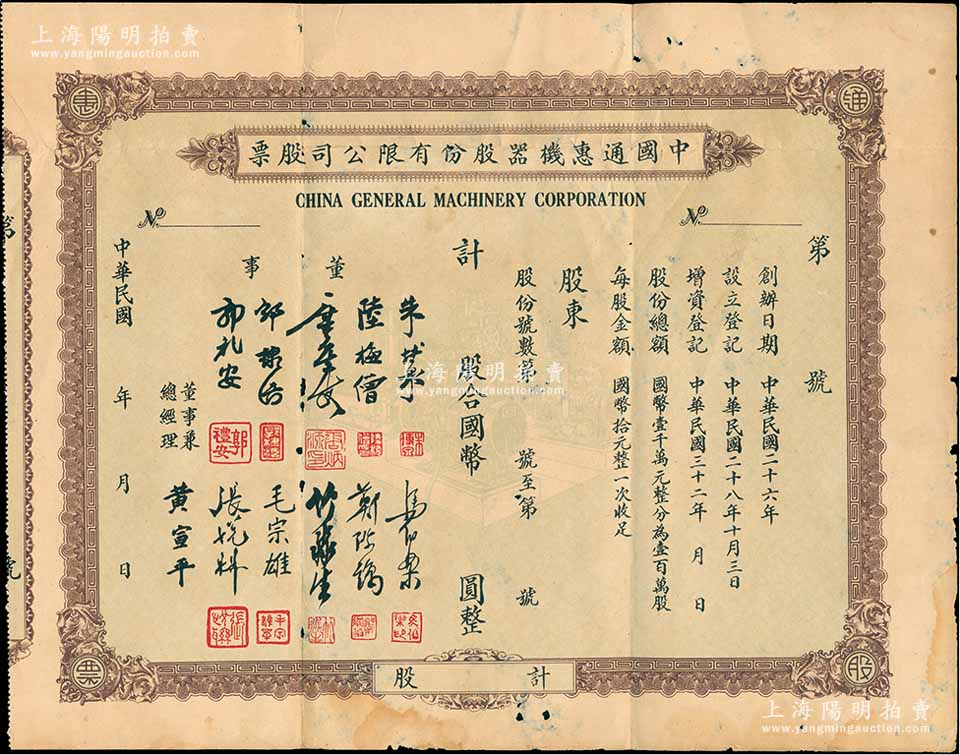 上海陽明拍賣
www.yangmingauction.com
通
惠
股
票
中國通惠機器股份有限公司股票
CHINA GENERAL MACHINERY CORPORATION
No
No
第 號
創辦日期 中華民國二十六年
設立登記 中華民國二十八年十月三日
增資登記 中華民國三十二年 月 日
股份總額 國幣壹千萬元整分為壹百萬股
每股金額 國幣拾元整一次收足
股東
股份號數第 號至第 號
計 股合國幣 圓整
董事
朱博泉
陸梅僧
鄭際鏑
竹森生
毛宗雄
郭禮安
董事兼總經理 黃宣平
中華民國 年 月 日
計 股
第 號
上海陽明拍賣
www.yangmingauction.com
上海陽明拍賣
www.yangmingauction.com